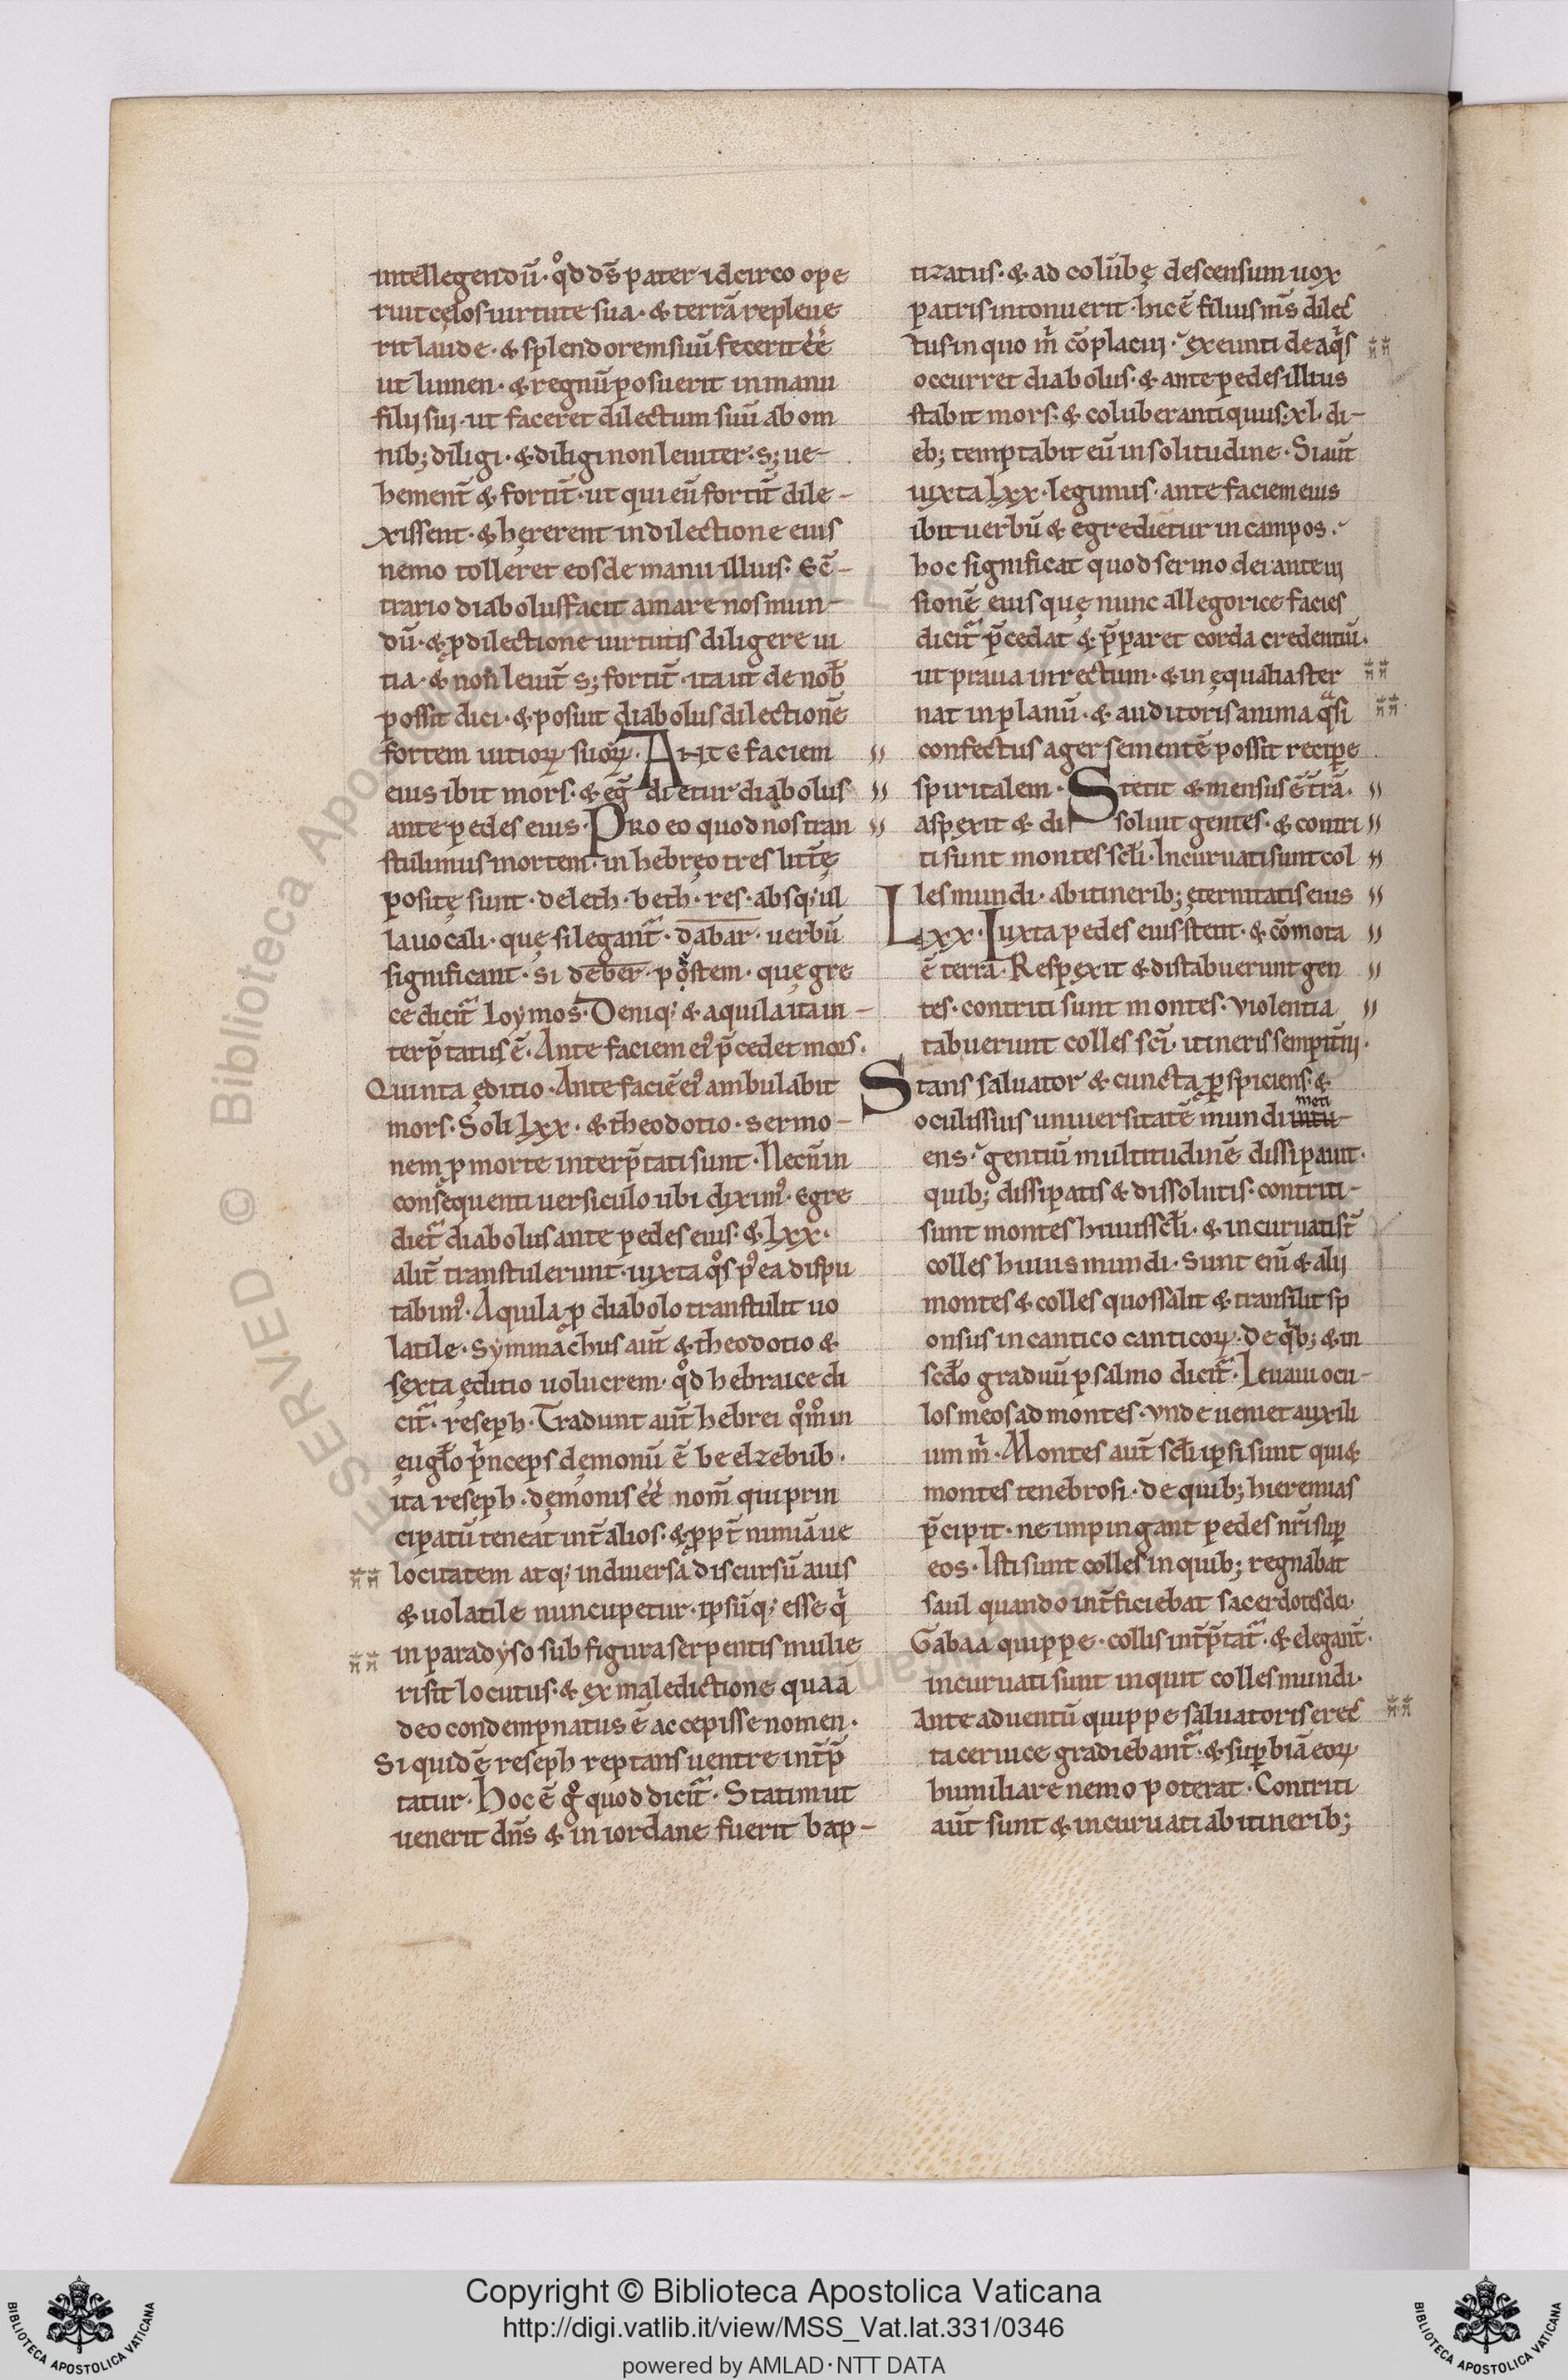 intellegendū· qͦd ds̄ pater idcirco ope
ruit cęlos uirtute sua· & terrā repleue
rit laude· & splendorem suū fecerit ēē
ut lumen· & regnū posuerit in manu
filij sui· ut faceret dilectum suū ab om
nib; diligi· & diligi non leuiter· s; ue-
hement̄ & fortit̄· ut qui eū fortit̄ dile-
xissent· & hęrerent in dilectione eius
nemo tolleret eos de manu illius· Ec̄-
trario diabolus facit amare nos mun-
dū· & ꝓ dilectione uirtutis diligere ui
tia· & non leuit̄ s; fortit̄· ita ut de nob̄
possit dici· & posuit diabolus dilectionē
fortem uitioꝝ suoꝝ· Ante faciem
eius ibit mors· & eḡdietur diabolus
ante pedes eius· Pro eo quod nos tran
stulimus mortem· in hebręo tres litt̄ę
positę sunt· deleth· beth· res· absq; ul
la uocali· quę si legant᷑· dabar· uerbū
significant· si deber· pestem· quę gre
ce dicit᷑ Loymos· Deniq; & aquila ita in-
terp̄tatus ē· Ante faciem ei᷒ p̄cedet mors·
Quinta ęditio· Ante faciē ei᷒ ambulabit
mors· Soli Lxx· & theodotio· sermo-
nem ꝓ morte interp̄tati sunt· Necn̄ in
consequenti uersiculo ubi dixim᷒· egre
diet᷑ diabolus ante pedes eius· & Lxx·
alit̄ transtulerunt· iuxta qͦs p᷒ ea dispu
tabim᷒· Aquila ꝓ diabolo transtulit uo
latile· Symmachus aut̄ & theodotio &
sexta ęditio uolucrem· qͦd hebraice di
cit᷑· reseph· Tradunt aut̄ hebrei qͦm̄ in
eugl̄o pͥnceps dęmonū ē beelzebub·
ita reseph· dęmonis ēē nom̄ qui prin
cipatū teneat int̄ alios· & ꝓpt̄ nimiā ue
locitatem atq; in diuersa discursū auis
& uolatile nuncupetur· ipsūq; esse qͥ
in paradyso sub figura serpentis mulie
ri sit locutus· & ex maledictione qua a
deo condempnatus ē accepisse nomen·
Si quidē reseph reptans uentre int̄p̄
tatur· Hoc ē gͦ quod dicit᷑· Statim ut
uenerit dn̄s & in iordane fuerit bap-
tizatus· & ad colūbę descensum uox
patris intonuerit· hic ē filius ms̄ dilec̄
tus in quo mͥ cōplacui· exeunti de aqͥs
occurret diabolus· & ante pedes illius
stabit mors· & coluber antiquus· xl· di-
eb; temptabit eū in solitudine· Si aut̄
iuxta Lxx· legimus· ante faciem eius
ibit uerbū & egredietur in campos·
hoc significat quod sermo dei ante ui
sionē eius quę nunc allegorice facies
dicit᷑ p̄cedat & p̄paret corda credentiū·
ut praua in rectum· & inęqualia ster
nat in planū· & auditoris anima qͣsi
confectus ager sementē possit recipe
spiritalem· Stetit & mensus ē t̄rā·
aspexit & dissoluit gentes· & contri
ti sunt montes scl̄i· Incuruati sunt col
les mundi· ab itinerib; ęternitatis eius
Lxx· Iuxta pedes eius stetit· & cōmota
ē terra· Respexit & distabuerunt gen
tes· contriti sunt montes· violentia
tabuerunt colles sc̄i· itineris sempit̄ni·
Stans saluator & cuncta ꝑspiciens· &
oculis suis uniuersitatē mundi intu-
meti
ens· gentiū multitudinē dissipauit·
quib; dissipatis & dissolutis· contriti-
sunt montes huius scl̄i· & incuruati st̄
colles huius mundi· Sunt eni᷑ & alij
montes & colles quos salit & transilit sp
onsus in cantico canticoꝝ· de qͥb; & in
scd̄o graduū psalmo dicit᷑· Leuaui ocu-
los meos ad montes· vnde ueniet auxili
um mͥ· Montes aut̄ scl̄i ipsi sunt qui &
montes tenebrosi· de quib; hieremias
p̄cipit· ne impingant pedes nr̄i suꝑ
eos· Isti sunt colles in quib; regnabat
saul quando int̄ficiebat sacerdotes dei·
Gabaa quippe· collis int̄p̄tat᷑· & elegant̄·
incuruati sunt inquit colles mundi·
Ante aduentū quippe saluatoris erec̄
ta ceruice gradiebant᷑· & suꝑbiā eoꝝ
humiliare nemo poterat· Contriti
aut̄ sunt & incuruati ab itinerib;
RESERVED © Biblioteca Apostolica Vaticana
Copyright © Biblioteca Apostolica Vaticana
http://digi.vatlib.it/view/MSS_Vat.lat.331/0346
powered by AMLAD·NTT DATA
BIBLIOTECA APOSTOLICA VATICANA
BIBLIOTECA APOSTOLICA VATICANA